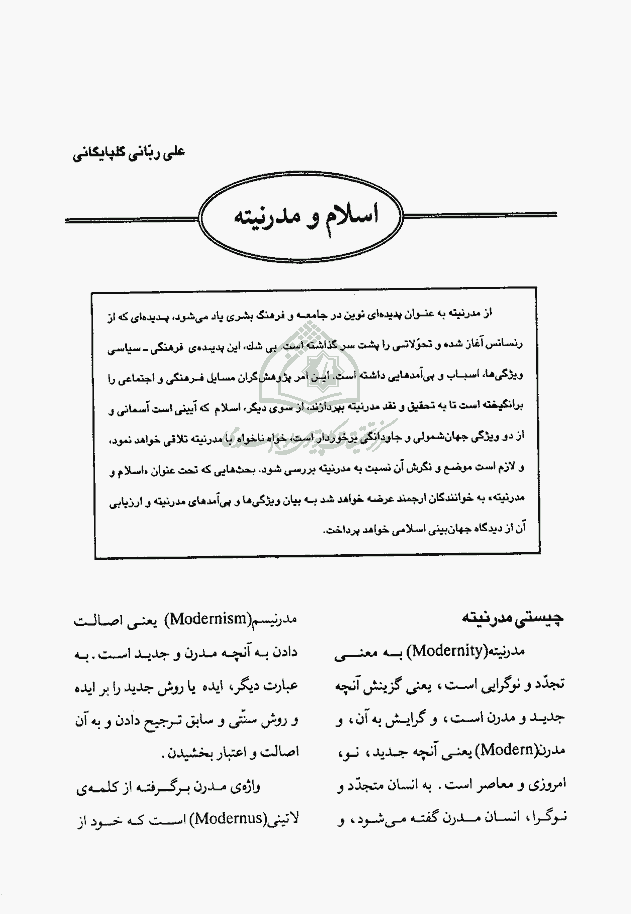 علی ربّانی گلپایگانی
اسلام و مدرنیته
از مدرنیته به عنوان پدیده‌ای نوین در جامعه و فرهنگ بشری یاد می‌شود، پدیده‌ای که از
رنسانس آغاز شده و تحوّلاتی را پشت سر گذاشته است. بی شك، این پدیده‌ی فرهنگی ـ سیاسی
ویژگی‌ها، اسباب و پی‌آمدهایی داشته است. این امر پژوهش‌گران مسایل فرهنگی و اجتماعی را
برانگیخته است تا به تحقیق و نقد مدرنیته بپردازند، از سوی دیگر، اسلام که آیینی است آسمانی و
از دو ویژگی جهان‌شمولی و جاودانگی برخوردار است، خواه ناخواه با مدرنیته تلاقی خواهد نمود،
و لازم است موضع و نگرش آن نسبت به مدرنیته بررسی شود. بحث‌هایی که تحت عنوان «اسلام و
مدرنیته» به خوانندگان ارجمند عرضه خواهد شد به بیان ویژگی‌ها و پی‌آمدهای مدرنیته و ارزیابی
آن از دیدگاه جهان‌بینی اسلامی خواهد پرداخت.
چیستی مدرنیته
مدرنیته(Modernity) به معنی
تجدّد و نوگرایی است، یعنی گزینش آنچه
جدید و مدرن است، و گرایش به آن، و
مدرن(Modern) یعنی آنچه جدید، نو،
امروزی و معاصر است. به انسان متجدّد و
نوگرا، انسان مدرن گفته می‌شود، و
مدرنیسم(Modernism) یعنی اصالت
دادن به آنچه مدرن و جدید است. به
عبارت دیگر، ایده یا روش جدید را بر ایده
و روش سنّتی و سابق ترجیح دادن و به آن
اصالت و اعتبار بخشیدن.
واژه‌ی مدرن برگرفته از کلمه‌ی
لاتینی(Modernus) است که خود از